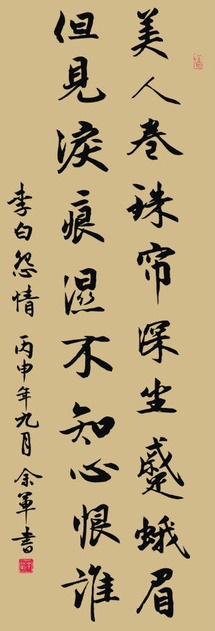 美人卷珠帘深坐蹙蛾眉
但见淚痕濕不知心恨谁
李白怨情 丙申年九月 余軍書